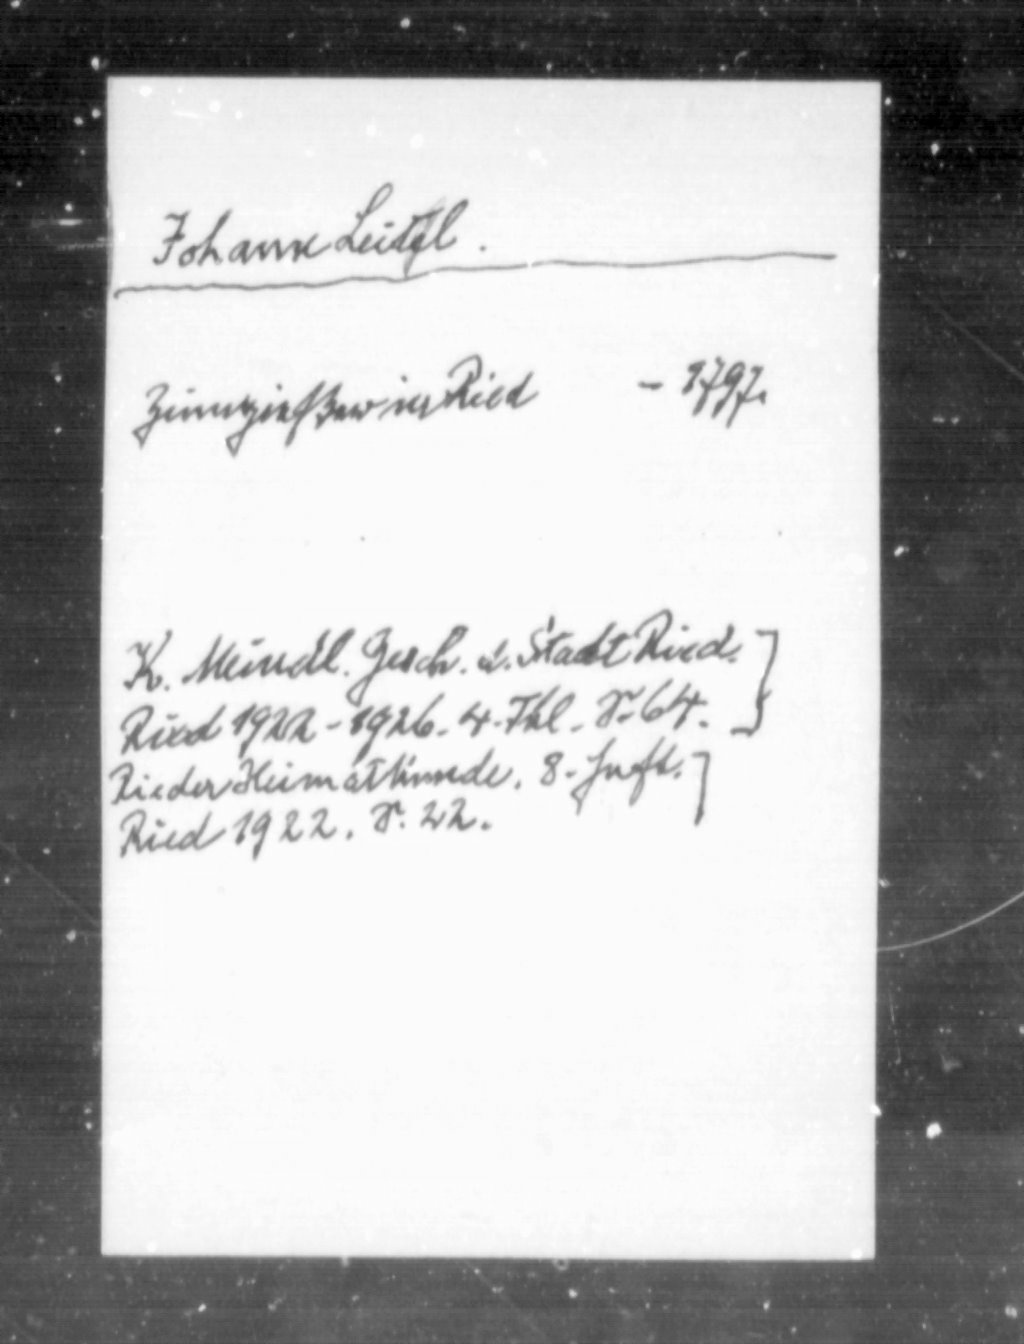 Johann Leitgl.
Zinngießer in Ried – 1797.
K. Meindl. Gesch. d. Stadt Ried. ]
Ried 1922 - 1926. 4. Thl. S. 64. ]
Rieder Heimatkunde. 8. Heft. ]
Ried 1922. S. 22.